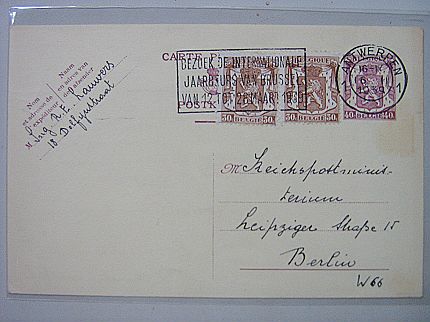 CARTE P
POSTK
BEZOEK DE INTERNATIONALE
JAARBEURS VAN BRUSSEL
VAN 12 TOT 26 MAART 1939
ANTWERPEN
1
30 30
BELGIE
30 30
BELGIE
40 40
Nom
et adresse de
l'expéditeur
Naam
en adres van
de afzender
M Ing. A. E. Lauwers
18 Dolfynstraat
M Reichspostminis-
terium
Leipziger Straße 15
Berlin
W 66